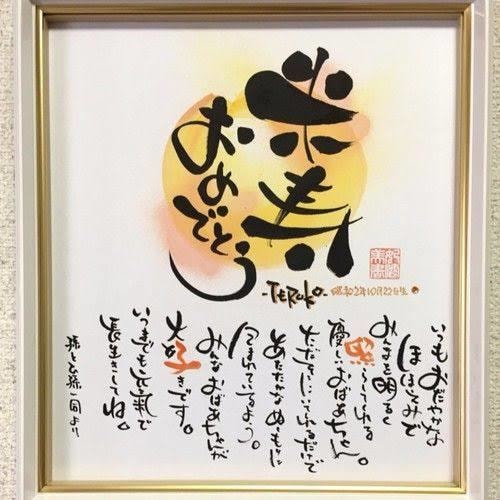 米寿
おめでとう
-TERUKO- 昭和2年10月22日生
いつもおだやかな
ほほえみで
みんなを明るく
照らしてくれる
優しいおばあちゃん
ただそこにいるだけで
あたたかなぬくもりに
包まれているよう。
みんなおばあちゃんが
大好きです。
いつまでも元気で
長生きしてね。
孫とひ孫一同より